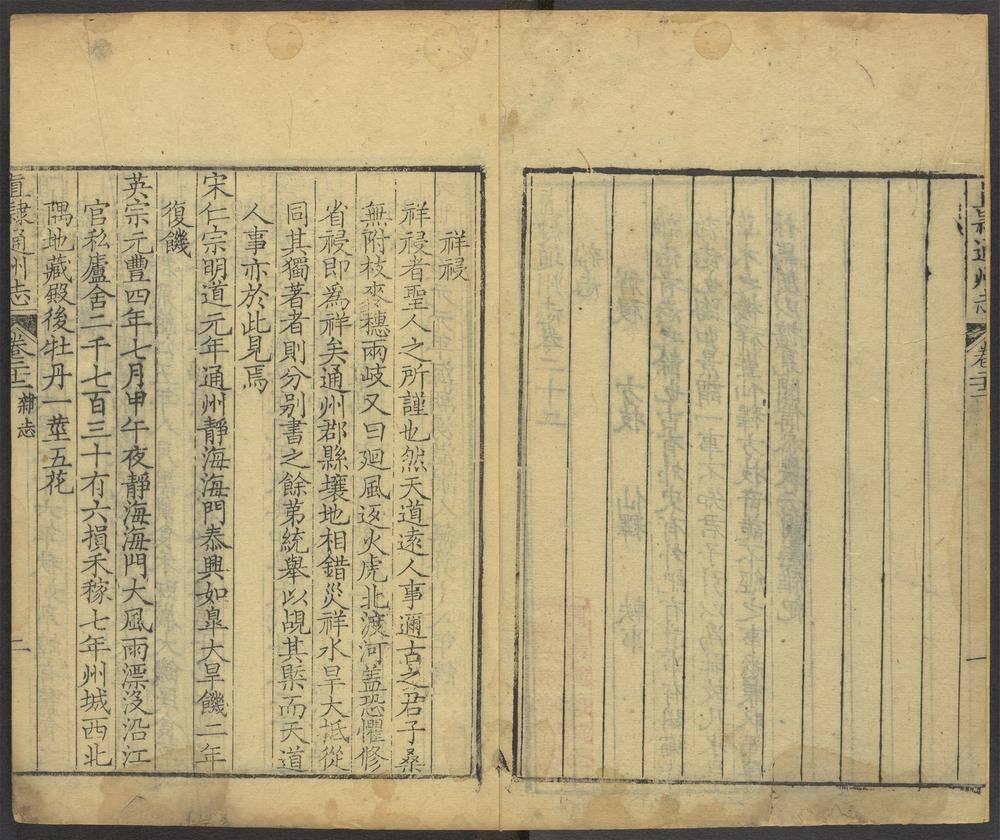 直隸通州志
卷二十二
一
祥祲
祥祲者聖人之所謹也然天道遠人事邇古之君子桑
無附枝麥穗兩歧又曰廻風返火虎北渡河蓋恐懼修
省祲即為祥矣通州郡縣壤地相錯災祥水旱大抵從
同其獨著者則分别書之餘苐統舉以覘其槩而天道
人事亦於此見焉
宋仁宗明道元年通州靜海海門泰興如臯大旱饑二年
復饑
英宗元豐四年七月甲午夜靜海海門大風雨漂沒沿江
官私廬舍二千七百三十有六損禾稼七年州城西北
隅地藏殿後牡丹一莖五花
直隸通州志
卷二十二
雜志
二